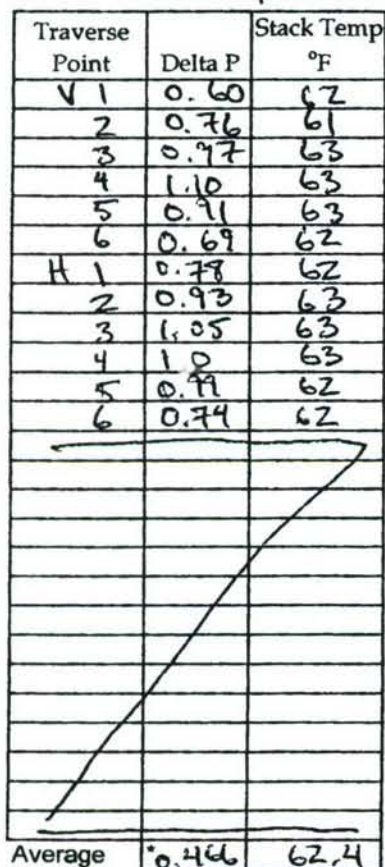 Traverse Point Delta P Stack Temp °F
V 1 0.60 62
2 0.76 61
3 0.97 63
4 1.10 63
5 0.91 63
6 0.69 62
H 1 0.78 62
2 0.93 63
3 1.05 63
4 1.0 63
5 0.99 62
6 0.74 62
Average *0.466 62.4